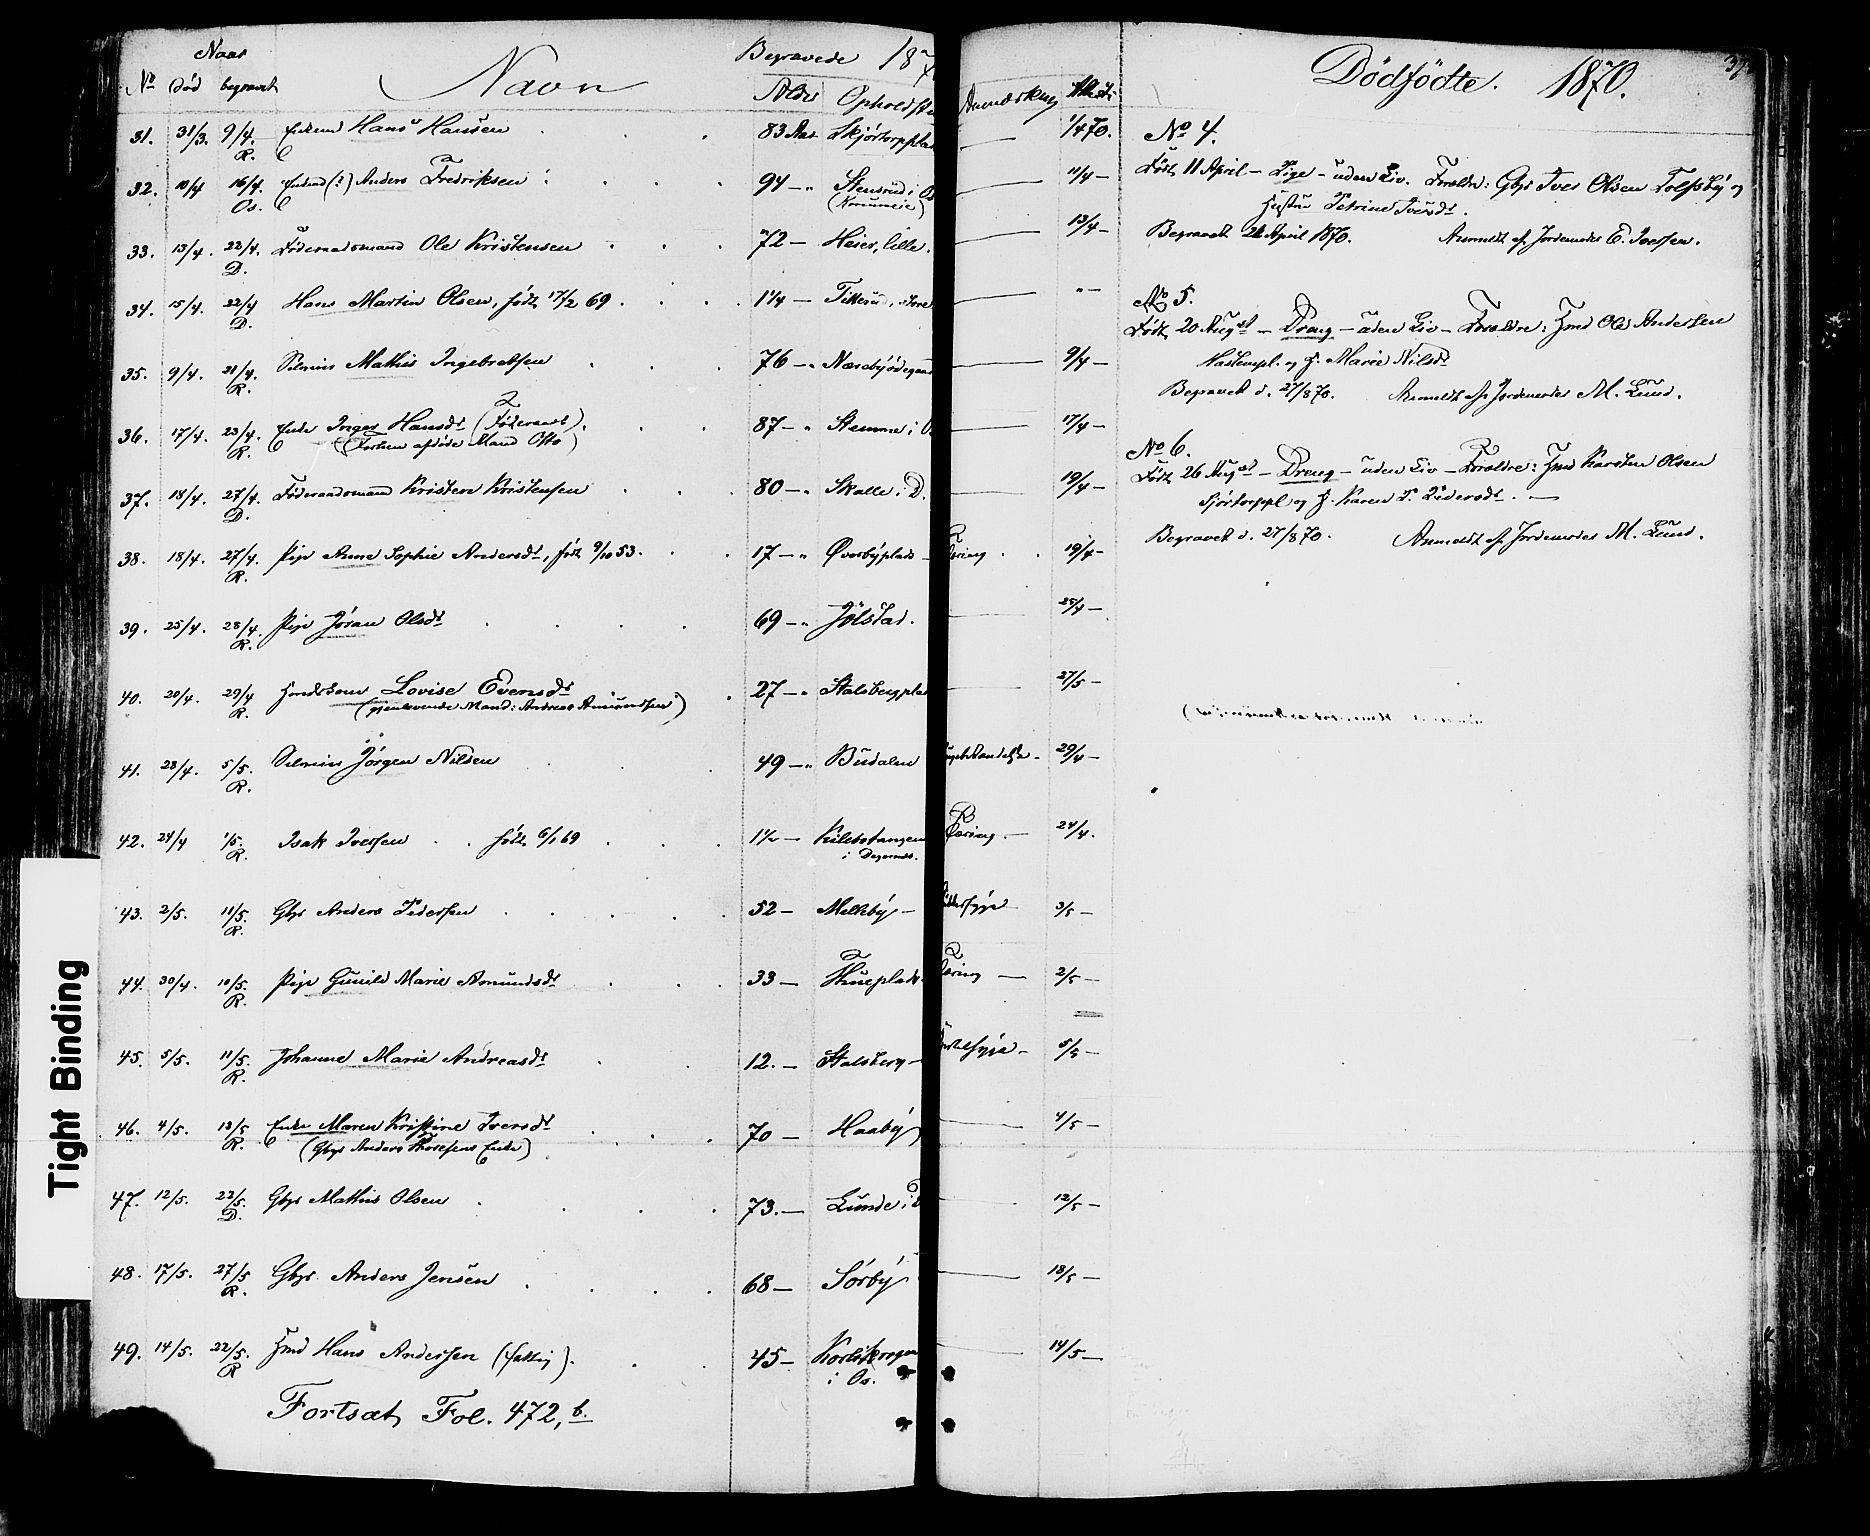 Naar
No død begravet Navn Begravede 187
Alder Opholdssted Anmærkning Attest
31. 31/3. 9/4. R. Enkemd Hans Hansen 83 Aar Skjørtorpplad 1/4 70.
32. 10/4 16/4. Os. Enkemd (?) Anders Fredriksen 94 — " Stensrud i Os 11/4 —
(Kommeie)
33. 13/4. 22/4. D. Føderaadsmand Ole Kristensen 72 — Heier, lille. 13/4 —
34. 15/4. 22/4 D. Hans Martin Olsen, født 17/2 69. 1 1/4 — Tikkerud, store " —
35. 9/4. 21/4. R. Selveier Mathis Ingebretsen 76 — " Næsebyødegaard 9/4 —
36. 17/4. 23/4. R. Enke Inger Hansdt (Føderaad). 87 — " Stemme i 17/4 —
(Forhen afdøde Mand Otto)
37. 18/4. 27/4. D. Føderaadsmand Kristen Kristensen 80 — " Skolle i D. 19/4 —
38. 18/4. 27/4. R. Pige Anne Sophie Andersdt, født 9/10 53. 17 — " Øverbyplads — Tæring. 19/4 —
39. 25/4. 28/4. R. Pige Jøran Olsdt 69 — " Jølstad. 25/4 —
40. 20/4. 29/4 R. Lovise Evensdt 27 — " Stalsbergpla 27/5 —
(gjenlevende Mand: Andreas Amundsen)
41. 28/4. 5/5. R. Selveier Jørgen Nilsen 49 — " Budalen 29/4 —
42. 24/4 1/5. R. Isak Iversen født 6/1 69 1 1/2 — Kilebotangen Tæring. — 24/4.
i Degernes.
43. 2/5. 11/5. R. Gbr Anders Pedersen 52 — Melleby — 3/5 —
44. 30/4. 10/5. R. Pige Gunild Marie Amundsdt 33 — Thueplads. Tæring — 2/5 —
45. 5/5. 11/5. R. Johanne Marie Andreasdt 12. — Stalsberg — 5/5 —
46. 4/5. 13/5 R. Enke Maren Kristine Iversdt 70 — Haaby 4/5 —
(Gbr Anders Thoresens Enke)
47. 12/5. 22/5. D. Gbr Mathis Olsen 73. — Lunde i 12/5 —
48. 17/5. 27/5 R. Gbr Anders Jensen 68 — Sørby 18/5 —
49. 14/5. 22/5. R Hmd Hans Andersen (fattig). 45 — 14/5 —
i Os.
Fortsat, Fol. 472, b.
Dødfødte. 1870. 37
No 4.
Født 11 April — Pige — uden Liv. Forældre: Gbr Iver Olsen Tolfsby og
Hustru Petrine Iversdt.
Begravet 24 April 1870. Anmeldt af Jordemoder E. Iversen.
No 5.
Født 20 August — Dreng — uden Liv — Forældre: Hmd Ole Andersen
og H. Marie Nilsdt
Begravet d. 27/8 70. Anmeldt af Jordemoder M. Lund.
No 6.
Født 26 August — Dreng — uden Liv — Forældre: Hmd Karsten Olsen
Sjørtorppl og H. Karen P. Pedersdt. —
Begravet d. 27/8 70. Anmeldt af Jordemoder M. Lund.
Tight Binding